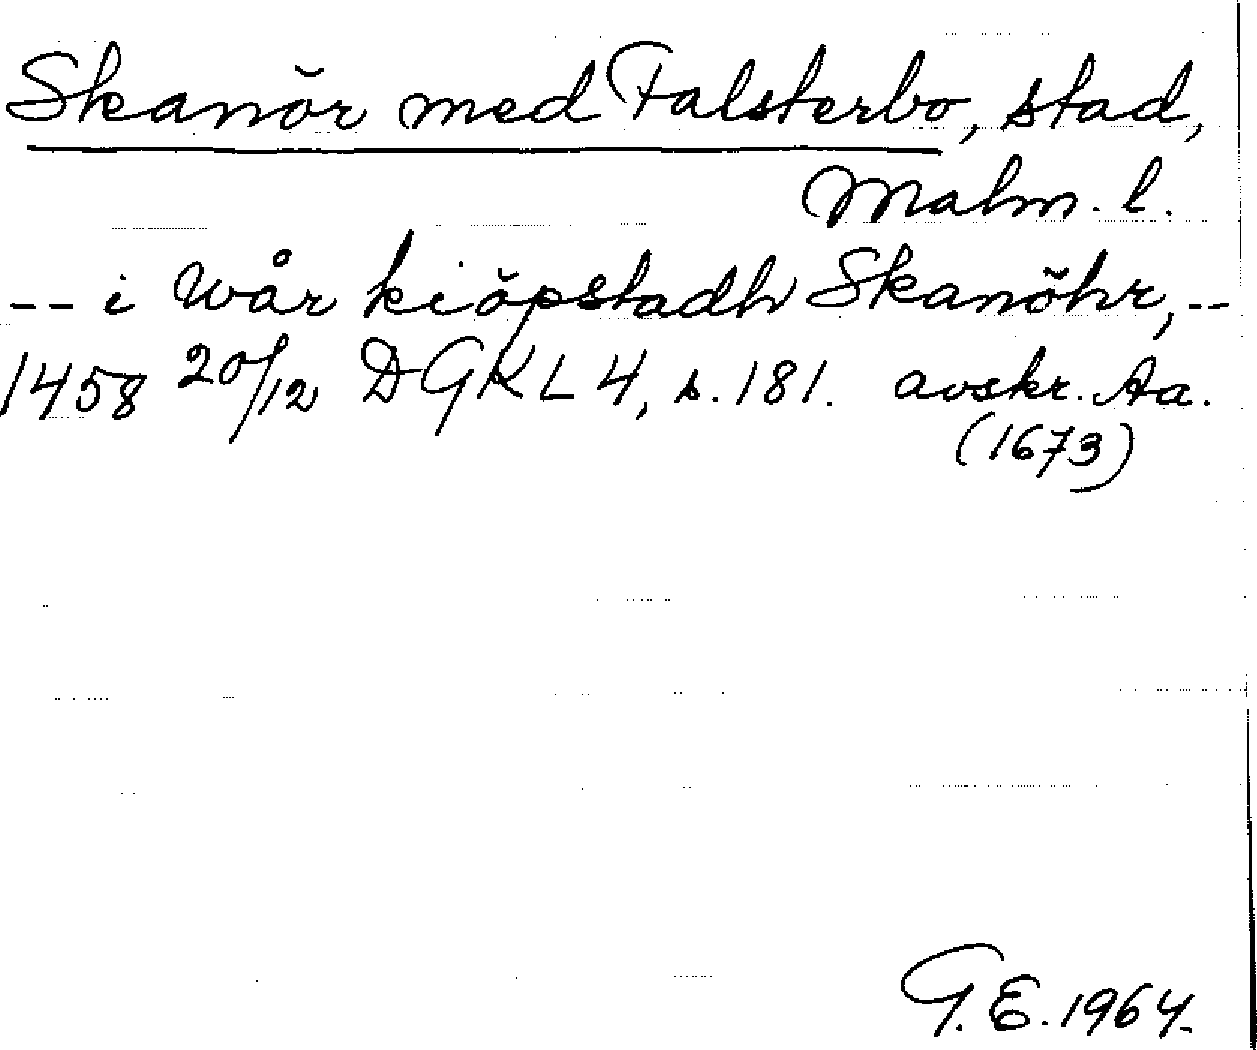 Skanör med Falsterbo, stad,
Malm. l.
-- i wår kiöpstadh Skanöhr, --
1458 20/12 DGKL 4, s. 181. avskr. Aa.
(1673)
G. E. 1964.